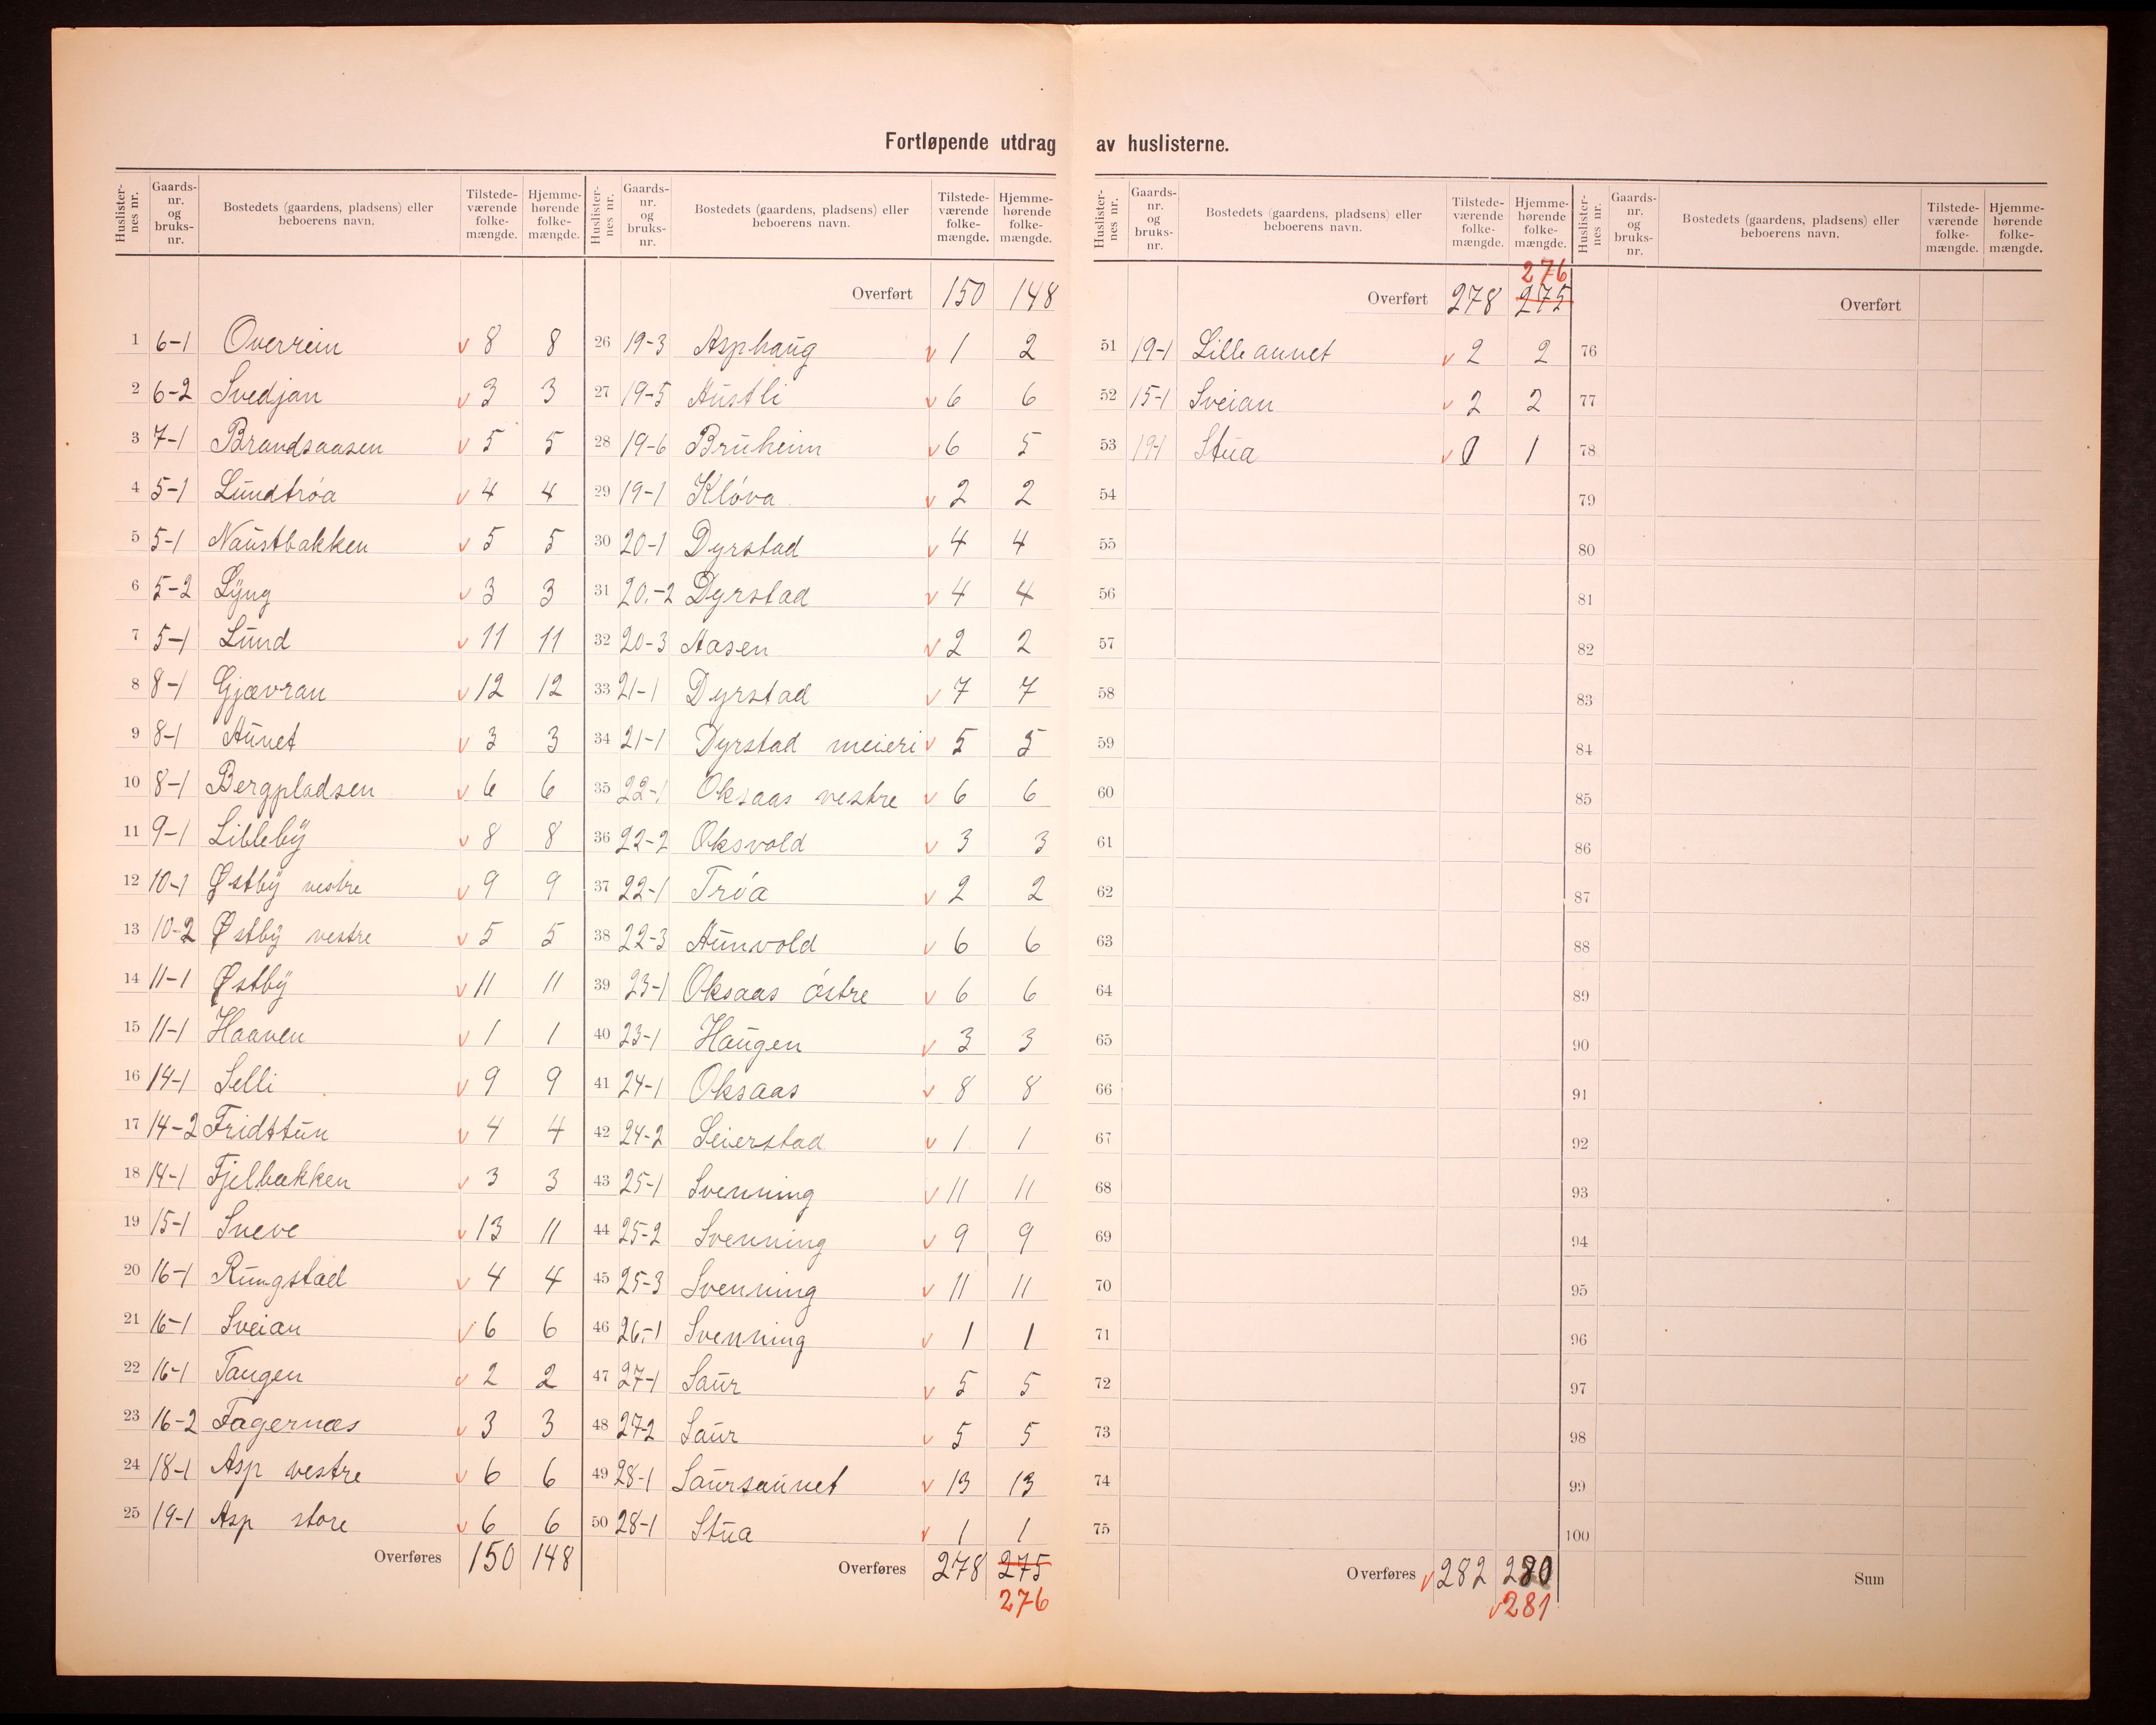 Fortløpende utdrag av huslisterne.
Huslisternes nr. Gaards-nr. og bruks-nr. Bostedets (gaardens, pladsens) eller beboerens navn. Tilstede-værende folke-mængde. Hjemme-hørende folke-mængde.
1 6-1 Overrein v 8 8
2 6-2 Svedjan v 3 3
3 7-1 Brandsaasen v 5 5
4 5-1 Lundtrøa v 4 4
5 5-1 Naustbakken v 5 5
6 5-2 Lyng v 3 3
7 5-1 Lund v 11 11
8 8-1 Gjævran v 12 12
9 8-1 Aunet v 3 3
10 8-1 Bergpladsen v 6 6
11 9-1 Lilleby v 8 8
12 10-1 Østby vestre v 9 9
13 10-2 Østby vestre v 5 5
14 11-1 Østby v 11 11
15 11-1 Haaven v 1 1
16 14-1 Selli v 9 9
17 14-2 Fridttun v 4 4
18 14-1 Fjelbakken v 3 3
19 15-1 Sneve v 13 11
20 16-1 Rungstad v 4 4
21 16-1 Sveian v 6 6
22 16-1 Tangen v 2 2
23 16-2 Fagernæs v 3 3
24 18-1 Asp vestre v 6 6
25 19-1 Asp store v 6 6
Overføres 150 148
Huslisternes nr. Gaards-nr. og bruks-nr. Bostedets (gaardens, pladsens) eller beboerens navn. Tilstede-værende folke-mængde. Hjemme-hørende folke-mængde.
Overført 150 148
26 19-3 Asphaug v 1 2
27 19-5 Austli v 6 6
28 19-6 Bruheim v 6 5
29 19-1 Kløva v 2 2
30 20-1 Dyrstad v 4 4
31 20.-2 Dyrstad v 4 4
32 20-3 Aasen v 2 2
33 21-1 Dyrstad v 7 7
34 21-1 Dyrstad meieri v 5 5
35 22-1 Oksaas vestre v 6 6
36 22-2 Oksvold v 3 3
37 22-1 Trøa v 2 2
38 22-3 Aunvold v 6 6
39 23-1 Oksaas østre v 6 6
40 23-1 Haugen v 3 3
41 24-1 Oksaas v 8 8
42 24-2 Seierstad v 1 1
43 25-1 Svenning v 11 11
44 25-2 Svenning v 9 9
45 25-3 Svenning v 11 11
46 26.-1 Svenning v 1 1
47 27-1 Saur v 5 5
48 27-2 Saur v 5 5
49 28-1 Saursaunet v 13 13
50 28-1 Stua v 1 1
Overføres 278 275
276
Huslisternes nr. Gaards-nr. og bruks-nr. Bostedets (gaardens, pladsens) eller beboerens navn. Tilstede-værende folke-mængde. Hjemme-hørende folke-mængde.
276
Overført 278 275
51 19-1 Lilleaunet v 2 2
52 15-1 Sveian v 2 2
53 19-1 Stua v 0 1
54
55
56
57
58
59
60
61
62
63
64
65
66
67
68
69
70
71
72
73
74
75
Overføres v 282 280
v 281
Huslisternes nr. Gaards-nr. og bruks-nr. Bostedets (gaardens, pladsens) eller beboerens navn. Tilstede-værende folke-mængde. Hjemme-hørende folke-mængde.
Overført
76
77
78
79
80
81
82
83
84
85
86
87
88
89
90
91
92
93
94
95
96
97
98
99
100
Sum